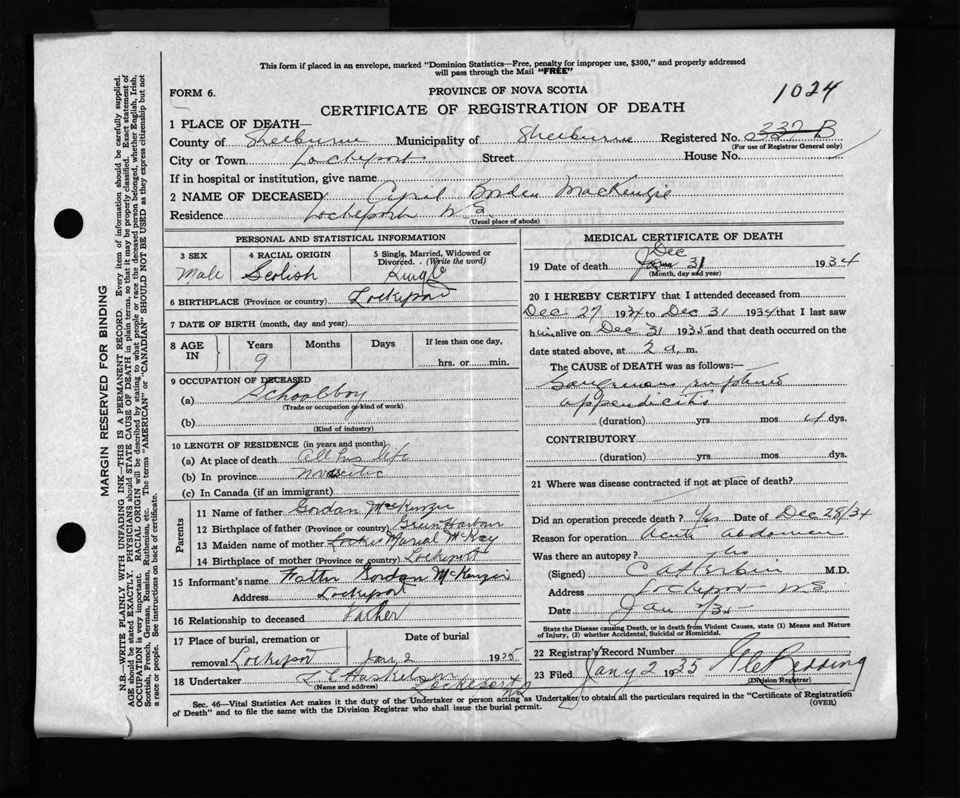 This form if placed in an envelope, marked "Dominion Statistics—Free, penalty for improper use, $300," and properly addressed
will pass through the Mail "FREE"
FORM 6.
PROVINCE OF NOVA SCOTIA
1024
CERTIFICATE OF REGISTRATION OF DEATH
1 PLACE OF DEATH—
County of Shelburne Municipality of Shelburne Registered No. 337 B
(For use of Registrar General only)
City or Town Lockeport Street House No.
If in hospital or institution, give name
2 NAME OF DECEASED Borden MacKenzie
Residence Lockeport N.S.
(Usual place of abode)
PERSONAL AND STATISTICAL INFORMATION
3 SEX 4 RACIAL ORIGIN 5 Single, Married, Widowed or Divorced. . (Write the word)
Male Scotish Single
6 BIRTHPLACE (Province or country) Lockeport
7 DATE OF BIRTH (month, day and year)
8 AGE IN Years Months Days If less than one day,
9 hrs. or min.
9 OCCUPATION OF DECEASED
(a) Schoolboy
(Trade or occupation or kind of work)
(b)
(Kind of industry)
10 LENGTH OF RESIDENCE (in years and months)
(a) At place of death all his life
(b) In province
(c) In Canada (if an immigrant)
Parents
11 Name of father Gordan McKenzie
12 Birthplace of father (Province or country) Green Harbour
13 Maiden name of mother Marial McKay
14 Birthplace of mother (Province or country) Lockeport
15 Informant's name Father Gordan McKenzie
Address Lockeport
16 Relationship to deceased Father
17 Place of burial, cremation or Date of burial
removal Lockeport Jany 2 1935
18 Undertaker Lockeport NS
(Name and address)
MEDICAL CERTIFICATE OF DEATH
19 Date of death Dec 31 1934
(Month, day and year)
20 I HEREBY CERTIFY that I attended deceased from
Dec 27 1934 to Dec 31 1934 that I last saw
him alive on Dec 31 1935 and that death occurred on
date stated above, at 2 a. m.
The CAUSE OF DEATH was as follows:—
appendicitis
(duration) yrs. mos 4 dys.
CONTRIBUTORY
(duration) yrs. mos. dys.
21 Where was disease contracted if not at place of death?
Did an operation precede death? Yes Date of Dec 28/34
Reason for operation Acute Abdomen
Was there an autopsy?
(Signed) M.D.
Address Lockeport N.S.
Date
State the Disease causing Death, or in death from Violent Causes, state (1) Means and Nature
of Injury, (2) whether Accidental, Suicidal or Homicidal.
22 Registrar's Record Number
23 Filed Jany 2 1935 Redding
(Division Registrar)
Sec. 46—Vital Statistics Act makes it the duty of the Undertaker or person acting as Undertaker to obtain all the particulars required in the "Certificate of Registration
of Death" and to file the same with the Division Registrar who shall issue the burial permit.
(OVER)
MARGIN RESERVED FOR BINDING
N.B.—WRITE PLAINLY WITH UNFADING INK—THIS IS A PERMANENT RECORD. Every item of information should be carefully supplied.
AGE should be stated EXACTLY. PHYSICIANS should STATE CAUSE OF DEATH in plain terms, so that it may be properly classified. Exact statement of
OCCUPATION is very important. RACIAL ORIGIN will be described by stating to what people or race the deceased person belonged, whether English, Irish,
Scottish, French, German, Russian, Ruthenian, etc. The terms "AMERICAN" or "CANADIAN" SHOULD NOT BE USED as they express citizenship but not
a race or people. See instructions on back of certificate.